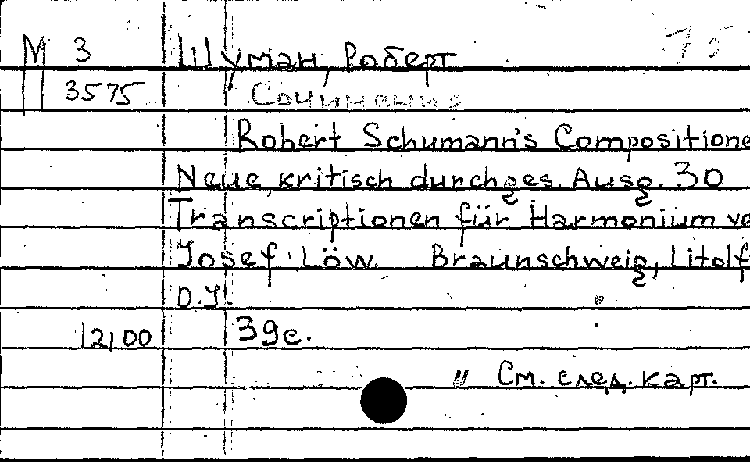 М 3 Шуман, Роберт 75
3575 Сочинения
Robert Schumann's Compositione
Neue kritisch durchges. Ausg. 30
Transcriptionen für Harmonium vo
Josef Löw. Braunschweig, Litolf
D.J.
12/00 39c.
" См. след. карт.